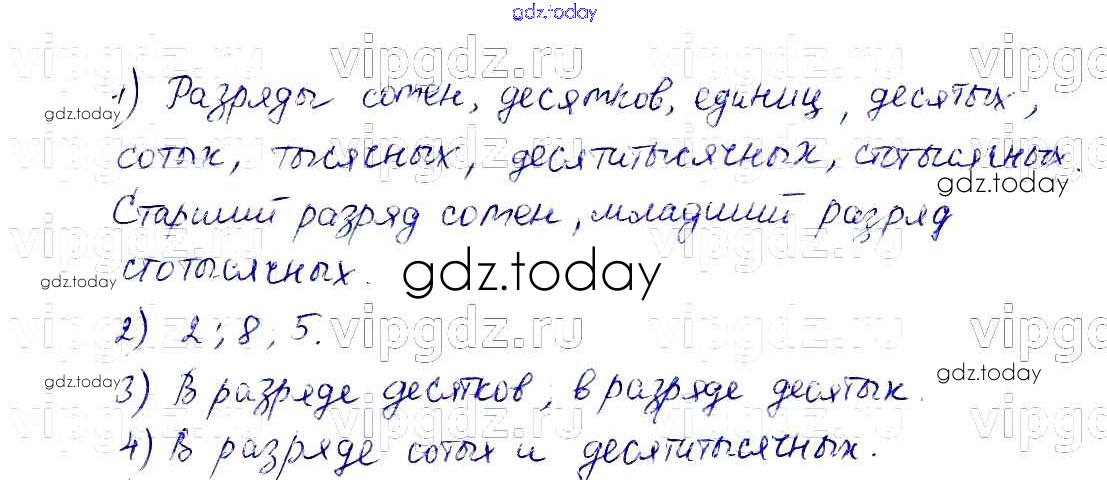 gdz.today
vipgdz.ru vipgdz.ru vipgdz.ru
1) Разряды сотен, десятков, единиц, десятых,
gdz.today
сотых, тысячных, десятитысячных, стотысячных.
gdz.today
Старший разряд сотен, младший разряд
стотысячных.
gdz.today
gdz.today
2) 2; 8; 5.
vipgdz.ru vipgdz.ru
3) В разряде десятков, в разряде десятых.
gdz.today
gdz.today
4) В разряде сотых и десятитысячных.